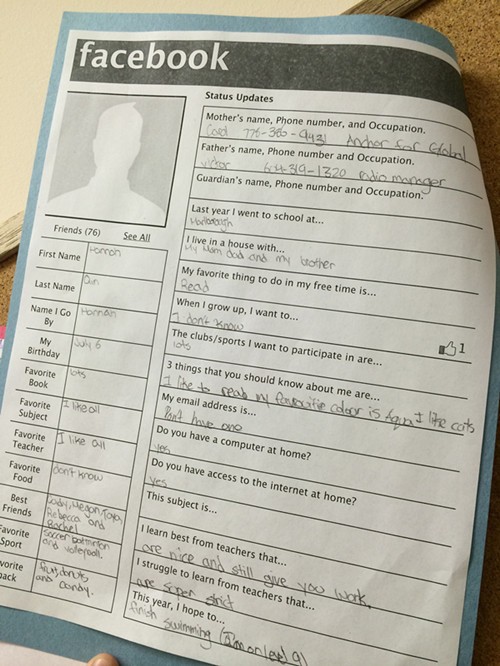 facebook
Status Updates
Mother's name, Phone number, and Occupation.
Anchor for Global
Father's name, Phone number and Occupation.
radio manager
Guardian's name, Phone number and Occupation.
Last year I went to school at...
I live in a house with...
My Mom dad and my brother
My favorite thing to do in my free time is...
Read
When I grow up, I want to...
I don't know
1
The clubs/sports I want to participate in are...
lots
3 things that you should know about me are...
I like to read my favourite colour is Aqua I like cats
My email address is...
Don't have one
Do you have a computer at home?
yes
Do you have access to the internet at home?
yes
This subject is...
I learn best from teachers that...
are nice and still give you work.
I struggle to learn from teachers that...
are super strict
This year, I hope to...
finish swimming (I'm on level 9)
Friends (76) See All
First Name Hannah
Last Name
Name I Go By Hannah
My Birthday July 6
Favorite Book lots
Favorite Subject I like all
Favorite Teacher I like all
Favorite Food don't know
Best Friends Megan,
Rebecca and
Rachel
Favorite Sport soccer, badminton
and volleyball.
fruit, donuts
and candy.